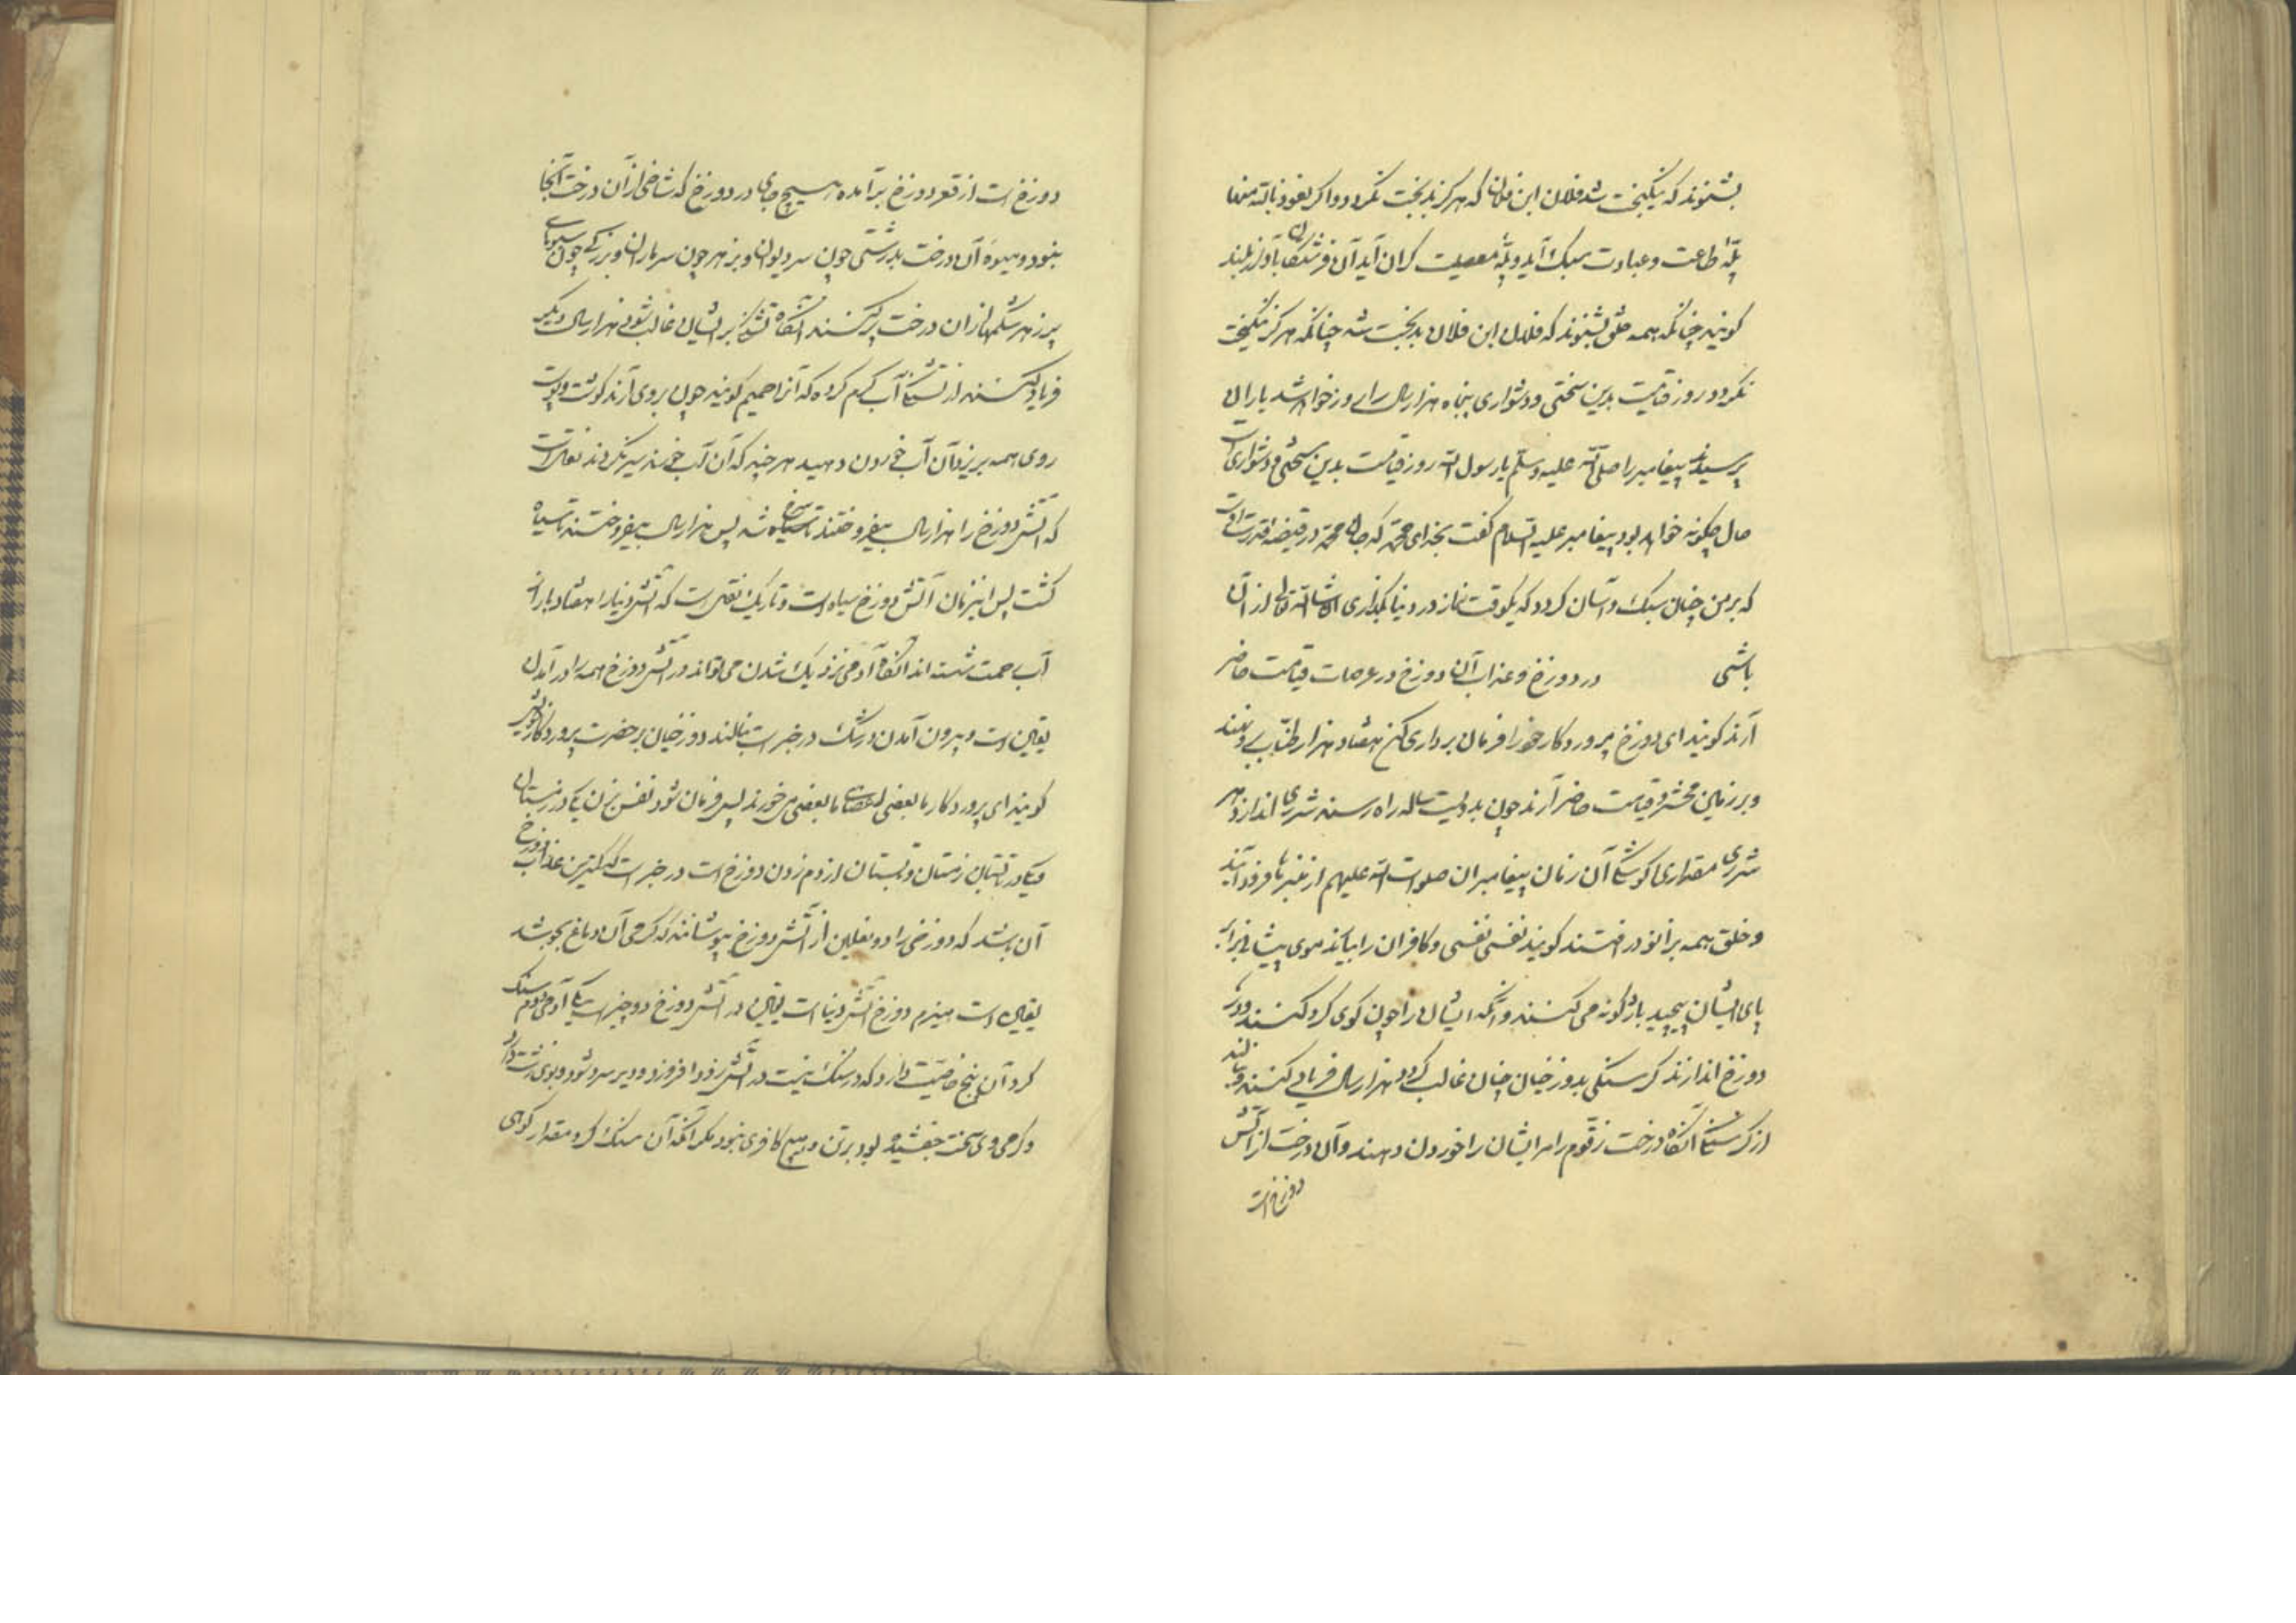 بشنوند که نیکبخت شد فلان ابن فلان که هرگز بدبخت نگردد و اگر نعوذ بالله منها
پلّهٔ طاعت و عبادت سبک آید و پلّهٔ معصیت گران آید آن فرشتگان بآواز بلند
گویند چنانکه همه خلق بشنوند که فلان ابن فلان بدبخت شد چنانکه هرگز نیکبخت
نگردد و روز قیامت بدین سختی و دشواری پنجاه هزار سال را روز خواهد شد یاران
پرسیدند پیغامبر را صلی الله علیه وسلم یا رسول الله روز قیامت بدین سختی و دشواری است
حال چگونه خواهد بود پیغامبر علیه السلام گفت بخدای محمد که جان محمد در قبضه قدرت اوست
که بر من چنان سبک و آسان گردد که یکوقت نماز در دنیا بگذاری ان شاء الله تعالی از آن
باشی در دوزخ و عذاب آن دوزخ در عرصات قیامت حاضر
آرند گویند ای دوزخ پرورد کار خود را فرمان برداری کن هفتاد هزار طناب
و بر زمین محشر و قیامت حاضر آرند چون بدویست ساله راه رسند شرری اندازد هر
شرری مقداری کوشکی آن زمان پیغامبران صلوات الله علیهم از منبرها فرود آیند
و خلق همه بزانو در افتند گویند نفسی نفسی و کافران را بیارند موی پیشانی برابر
پای ایشان بپیچید باژگونه می کنند و آنگه ایشان را چون گوی گرد کنند و در
دوزخ اندازند گرسنگی بدوزخیان چنان غالب گردد هزار سال فریاد کنند و بنالند
از گرسنگی آنگاه درخت زقوم را مر ایشان را خوردن دهند و آن درخت از آتش
دوزخ است
دوزخ است از قعر دوزخ برآمده هیچ جای در دوزخ که شاخی از آن درخت آنجا
نبود و میوهٔ آن درخت بدرشتی چون سر دیوان و بزهر چون سر ماران و بزرگی چون سبوهای
پر زهر شکمها از آن درخت پر کنند آنگاه تشنگی بر ایشان غالب شود هزار سال دیگر
فریاد کنند از تشنگی آب گرم کرده که آنرا حمیم گویند چون بروی آرند گوشت و پوست
روی همه بریزد آن آب خوردن دهید هر چند که آن آب خورند سیر نگردند نقلست
که آتش دوزخ را هزار سال بیفروختند تا سرخ شد پس هزار سال بیفروختند تا سیاه
گشت پس این زمان آتش دوزخ سیاه است و تاریک نقل است که آتش دنیا را هفتاد بار از
آب رحمت شسته اند آنگاه آدمی نزدیک شدن می تواند در آتش دوزخ همه را در آمدن
یقین است و بیرون آمدن در شک در خبر است بنالند دوزخیان بر حضرت پروردگار خویش
گویند ای پروردگار ما بعضی اعضای ما بعضی می خورند پس فرمان شود نفس بزن یکی در زمستان
و یکی در تابستان زمستان و تابستان از دم زدن دوزخ است در خبر است که کمترین عذاب دوزخ
آن باشد که دوزخی را دو نعلین از آتش دوزخ بپوشانند که گرمی آن دماغ بجوشد
یقین است هیزم دوزخ آتش دنیا است یقین در آتش دوزخ دو چیز است یکی آدمی دوم سنگ
گرد آن پنج خاصیت دارد که در سنگ نیست در آتش زود افروزد و دیر سرد شود و بوی زشت دارد
و گرمی وی سخت بود بر تن و هیچ کافری نبود مگر آنکه آن سنگ گرد مقدار کوهی